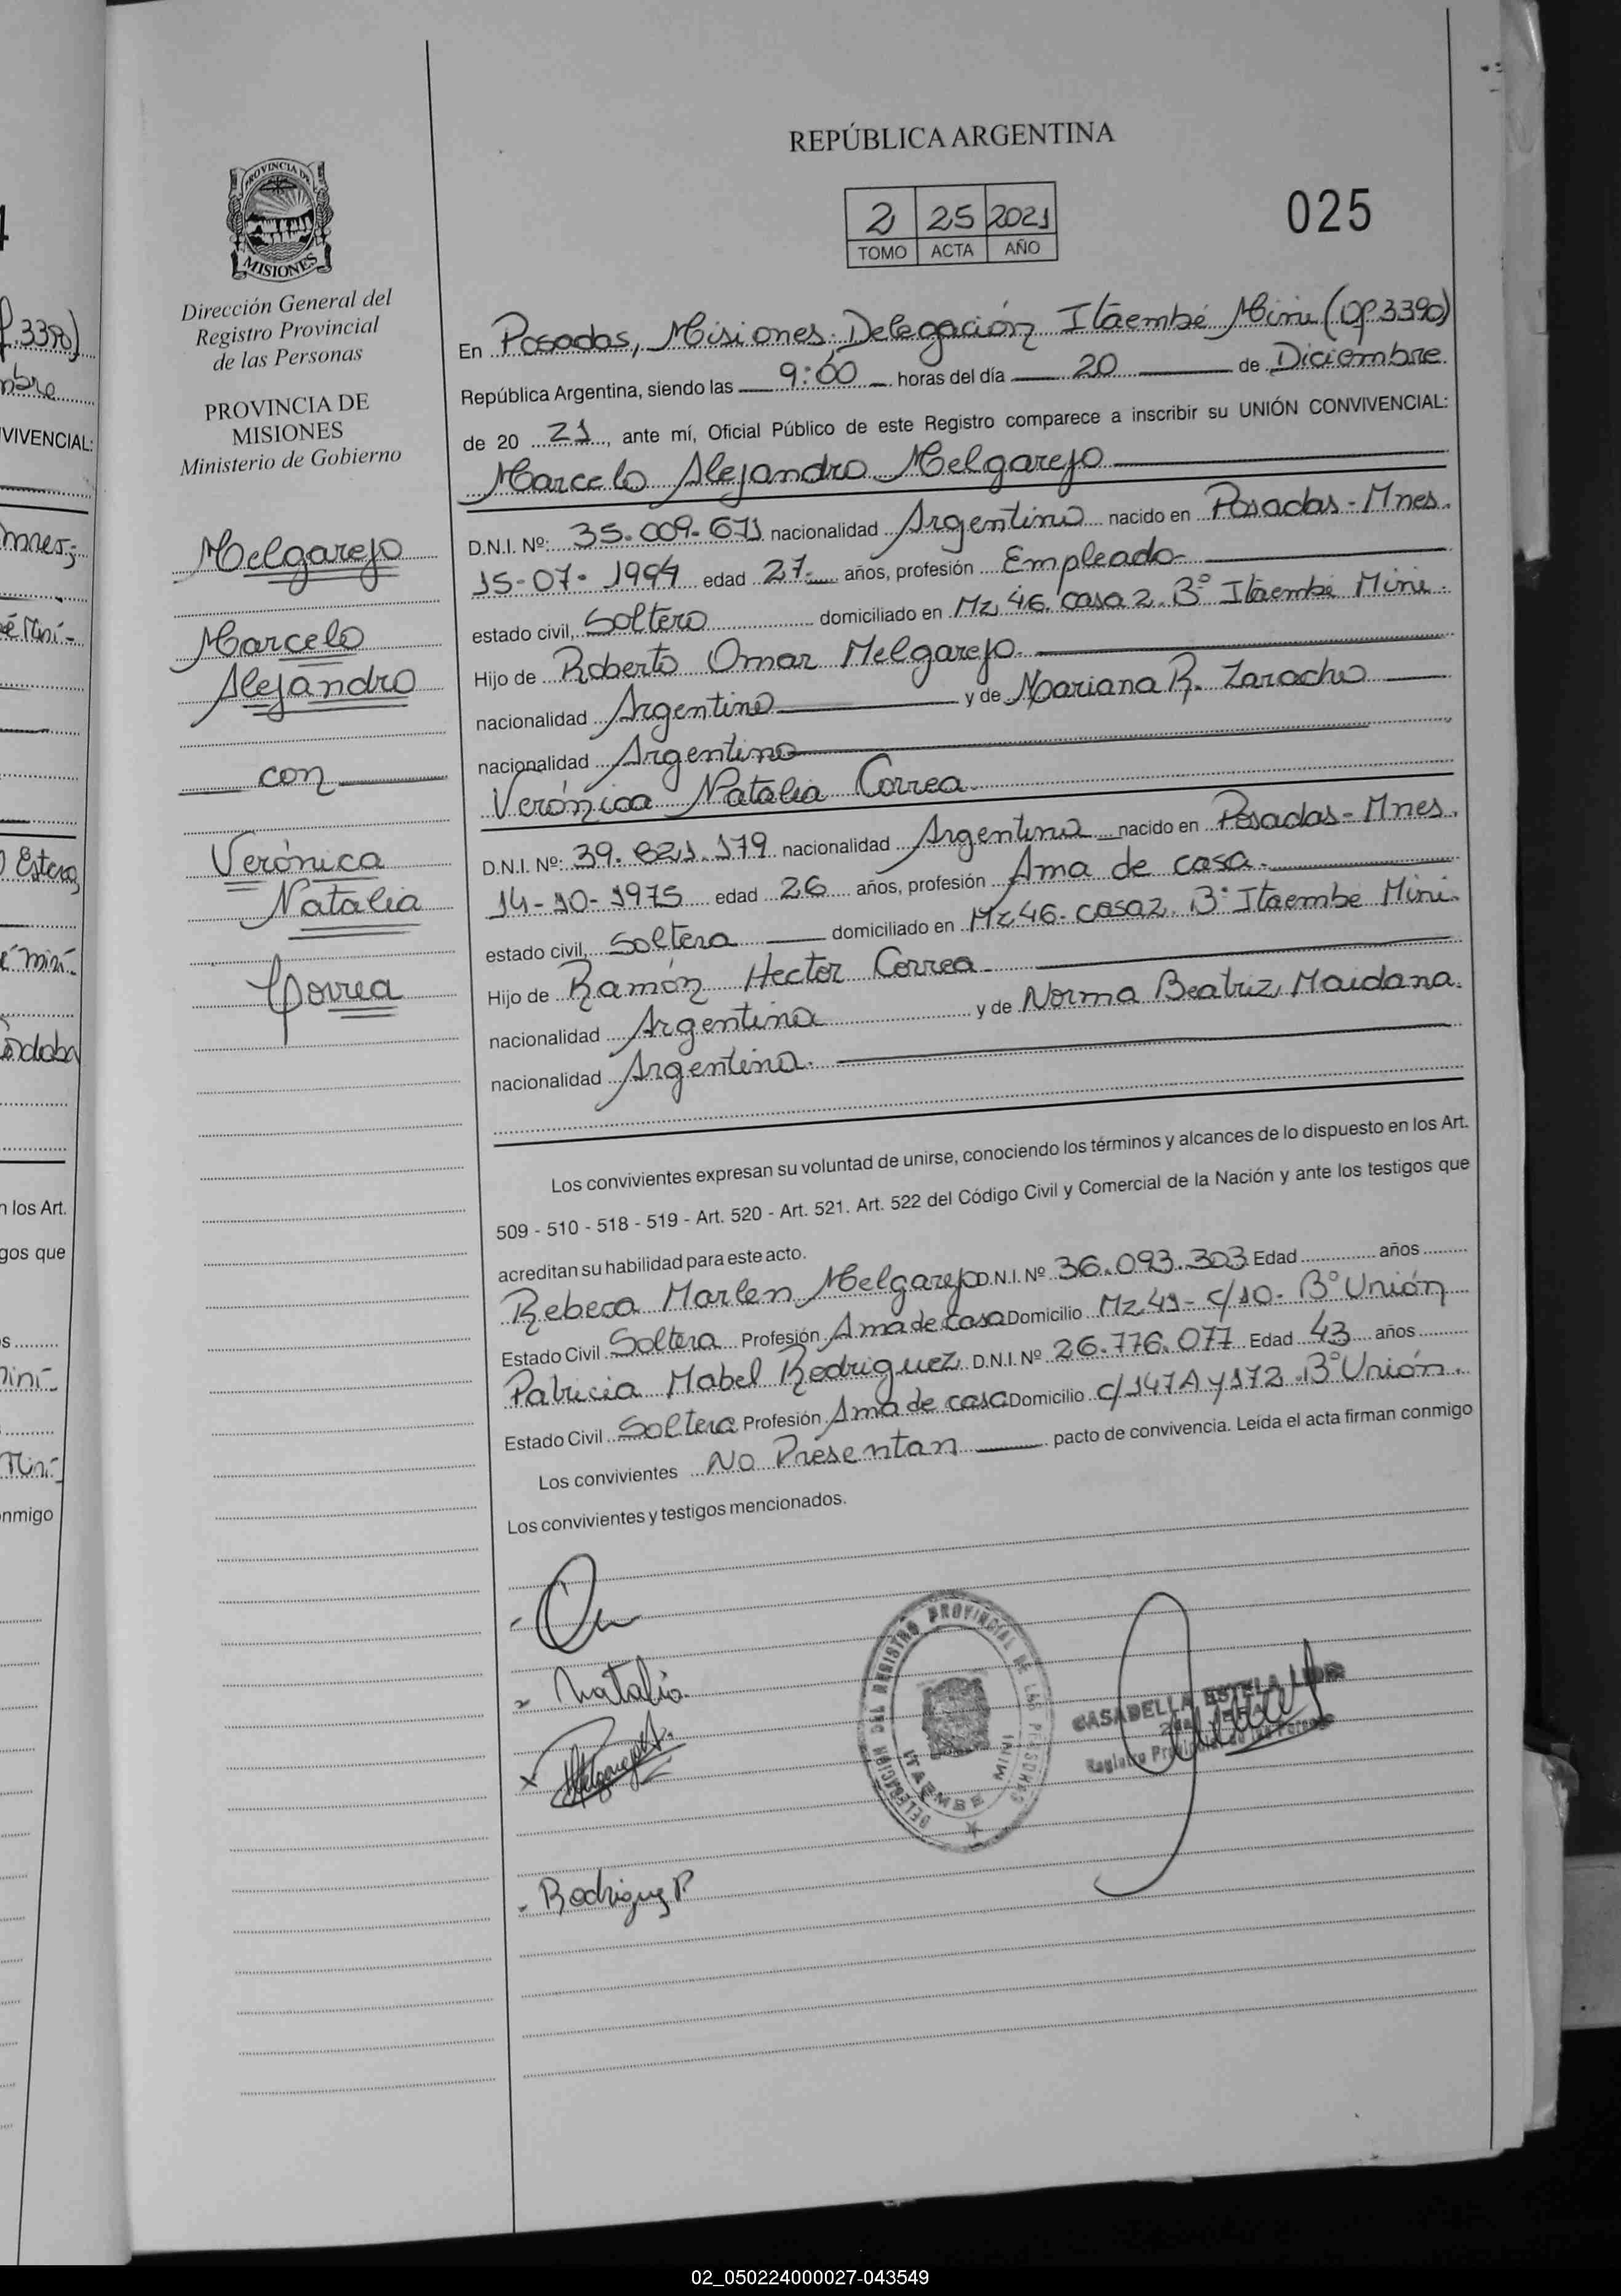 REPÚBLICA ARGENTINA
2 25 2021
TOMO ACTA AÑO
025
PROVINCIA DE
MISIONES
Dirección General del
Registro Provincial
de las Personas
PROVINCIA DE
MISIONES
Ministerio de Gobierno
Melgarejo
Marcelo
Alejandro
con
Verónica
Natalia
Correa
En Posadas, Misiones. Delegación Itaembé Mini (OP.3390)
República Argentina, siendo las 9:00 horas del día 20 de Diciembre
de 20 21, ante mí, Oficial Público de este Registro comparece a inscribir su UNIÓN CONVIVENCIAL:
Marcelo Alejandro Melgarejo
D.N.I. Nº: 35.009.671 nacionalidad Argentina nacido en Posadas - Mnes.
15-07-1994 edad 27 años, profesión Empleado
estado civil, Soltero domiciliado en Mz. 46. casa 2. Bº Itaembé Mini.
Hijo de Roberto Omar Melgarejo.
nacionalidad Argentino y de Mariana R. Zaracho
nacionalidad Argentina
Verónica Natalia Correa
D.N.I. Nº: 39.821.179 nacionalidad Argentina nacido en Posadas - Mnes.
14-10-1975 edad 26 años, profesión Ama de casa.
estado civil, Soltera domiciliado en Mz 46. casa 2. Bº Itaembe Mini.
Hijo de Ramón Hector Correa
nacionalidad Argentina y de Norma Beatriz Maidana.
nacionalidad Argentina.
Los convivientes expresan su voluntad de unirse, conociendo los términos y alcances de lo dispuesto en los Art.
509 - 510 - 518 - 519 - Art. 520 - Art. 521. Art. 522 del Código Civil y Comercial de la Nación y ante los testigos que
acreditan su habilidad para este acto.
Rebeca Marlen Melgarejo D.N.I. Nº 36.093.303 Edad años
Estado Civil Soltera Profesión Ama de Casa Domicilio Mz.49 - c/10 - Bº Unión
Patricia Mabel Rodriguez D.N.I. Nº 26.776.077 Edad 43 años
Estado Civil Soltera Profesión Ama de casa Domicilio c/147A y 172. Bº Unión.
Los convivientes No Presentan pacto de convivencia. Leída el acta firman conmigo
Los convivientes y testigos mencionados.
Natalia
Rodriguez P
DELEGACION DEL REGISTRO PROVINCIAL DE LAS PERSONAS
ITAEMBE MINI
CASADELLA ESTELA
Registro Provincial de las Personas
02_050224000027-043549